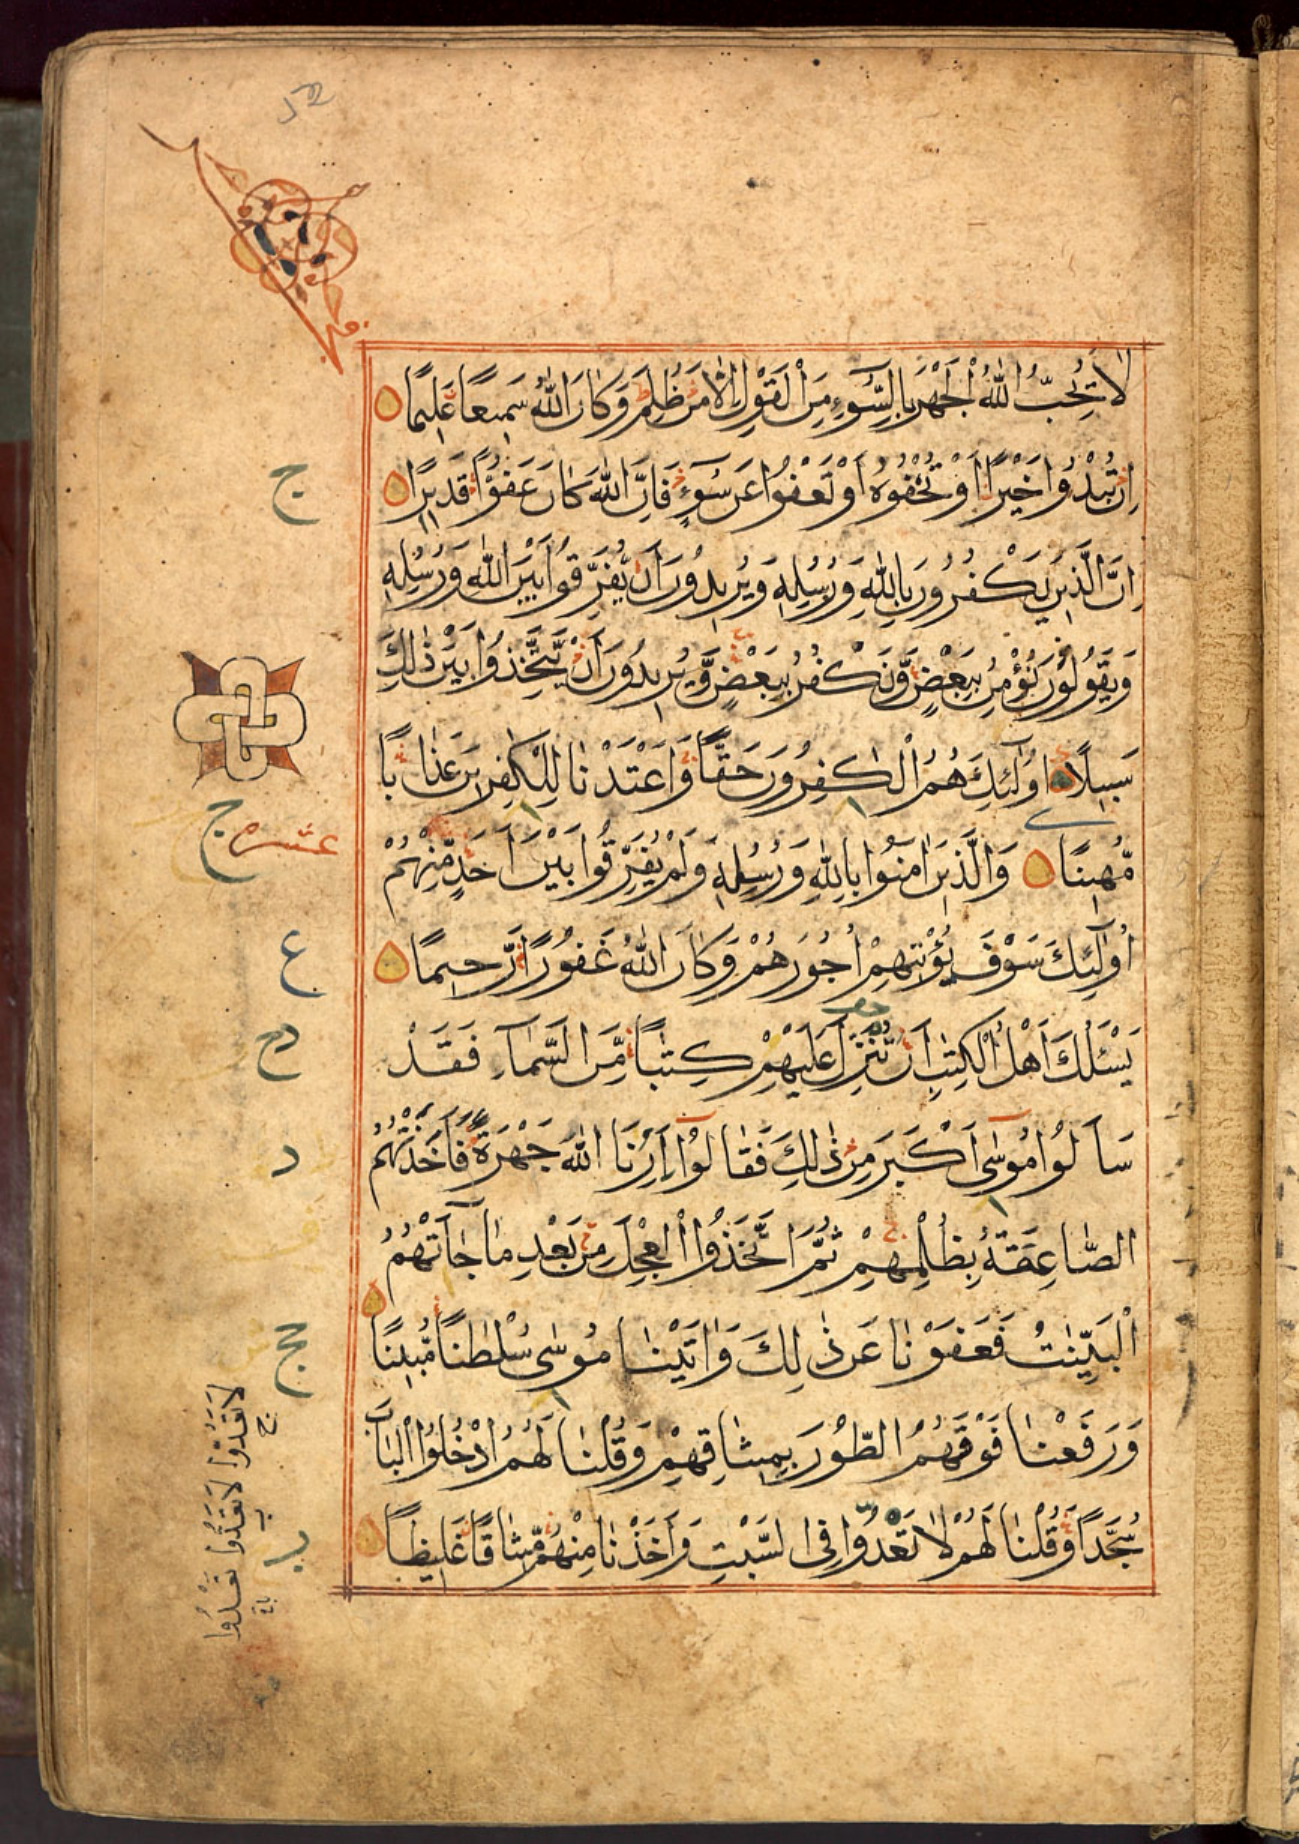 لَا يُحِبُّ اللّٰهُ الْجَهْرَ بِالسُّوٓءِ مِنَ الْقَوْلِ اِلَّا مَنْ ظُلِمَ وَكَانَ اللّٰهُ سَمِيعًا عَلِيمًا
اِنْ تُبْدُوا خَيْرًا اَوْ تُخْفُوهُ اَوْ تَعْفُوا عَنْ سُوٓءٍ فَاِنَّ اللّٰهَ كَانَ عَفُوًّا قَدِيرًا
اِنَّ الَّذِينَ يَكْفُرُونَ بِاللّٰهِ وَرُسُلِهِ وَيُرِيدُونَ اَنْ يُفَرِّقُوا بَيْنَ اللّٰهِ وَرُسُلِهِ
وَيَقُولُونَ نُؤْمِنُ بِبَعْضٍ وَّنَكْفُرُ بِبَعْضٍ وَّيُرِيدُونَ اَنْ يَّتَّخِذُوا بَيْنَ ذٰلِكَ
سَبِيلًا اُولٰٓئِكَ هُمُ الْكٰفِرُونَ حَقًّا وَّاَعْتَدْنَا لِلْكٰفِرِينَ عَذَابًا
مُّهِينًا وَالَّذِينَ اٰمَنُوا بِاللّٰهِ وَرُسُلِهِ وَلَمْ يُفَرِّقُوا بَيْنَ اَحَدٍ مِّنْهُمْ
اُولٰٓئِكَ سَوْفَ يُؤْتِيهِمْ اُجُورَهُمْ وَكَانَ اللّٰهُ غَفُورًا رَّحِيمًا
يَسْئَلُكَ اَهْلُ الْكِتٰبِ اَنْ تُنَزِّلَ عَلَيْهِمْ كِتٰبًا مِّنَ السَّمَآءِ فَقَدْ
سَاَلُوا مُوسٰى اَكْبَرَ مِنْ ذٰلِكَ فَقَالُوا اَرِنَا اللّٰهَ جَهْرَةً فَاَخَذَتْهُمُ
الصَّاعِقَةُ بِظُلْمِهِمْ ثُمَّ اتَّخَذُوا الْعِجْلَ مِنْ بَعْدِ مَا جَآءَتْهُمُ
الْبَيِّنٰتُ فَعَفَوْنَا عَنْ ذٰلِكَ وَاٰتَيْنَا مُوسٰى سُلْطٰنًا مُّبِينًا
وَرَفَعْنَا فَوْقَهُمُ الطُّورَ بِمِيثَاقِهِمْ وَقُلْنَا لَهُمُ ادْخُلُوا الْبَابَ
سُجَّدًا وَّقُلْنَا لَهُمْ لَا تَعْدُوا فِى السَّبْتِ وَاَخَذْنَا مِنْهُمْ مِّيثَاقًا غَلِيظًا
ج
عشر
ج
ع
د